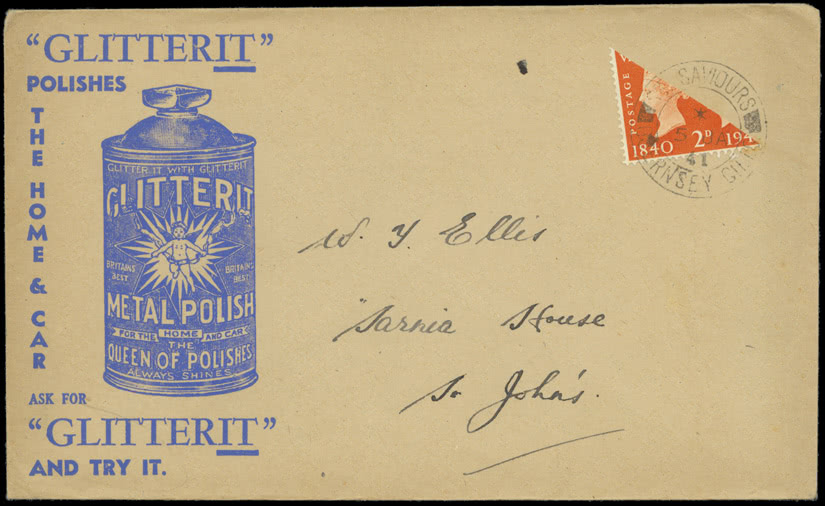 “GLITTERIT”
POLISHES
THE HOME & CAR
GLITTER IT WITH GLITTERIT
GLITTERIT
BRITAINS BEST
BRITAINS BEST
METAL POLISH
FOR THE HOME AND CAR
THE
QUEEN OF POLISHES
ALWAYS SHINES
ASK FOR
“GLITTERIT”
AND TRY IT.
POSTAGE
1840 2D 194
SAVIOURS
5 JA
41
GUERNSEY
W. Y. Ellis
Sarnia House
St John's.